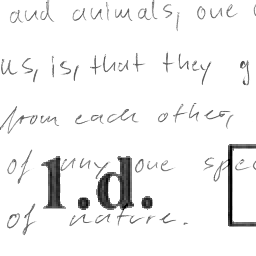 and animals, one
us, is, that they g
from each other,
of any one spe
1.d.
of nature.